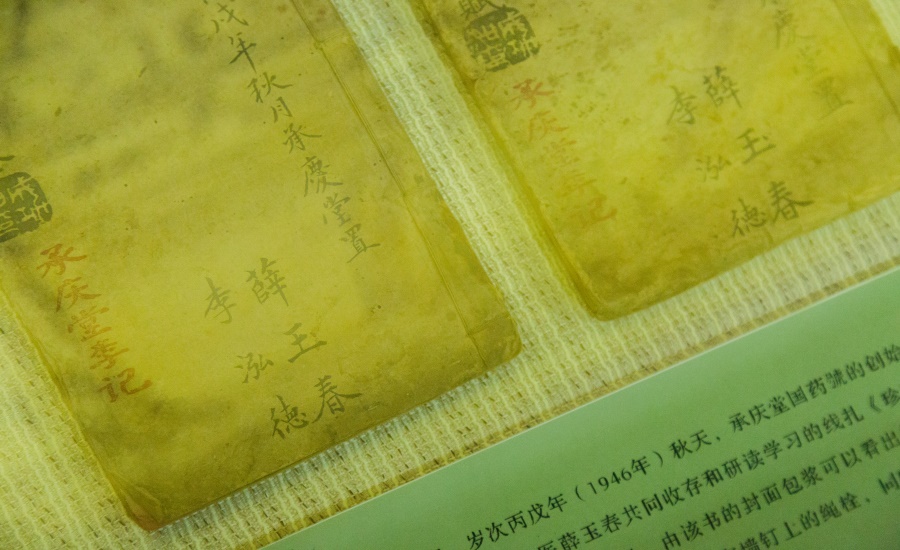 戊年秋月承慶堂置
薛玉春
李泓德
承庆堂李记
賦
慶堂置
薛玉春
李泓德
承庆堂李记
岁次丙戊年（1946年）秋天，承庆堂国药號的创始
医薛玉春共同收存和研读学习的线扎《珍
由该书的封面包浆可以看出
墙钉上的绳栓，同